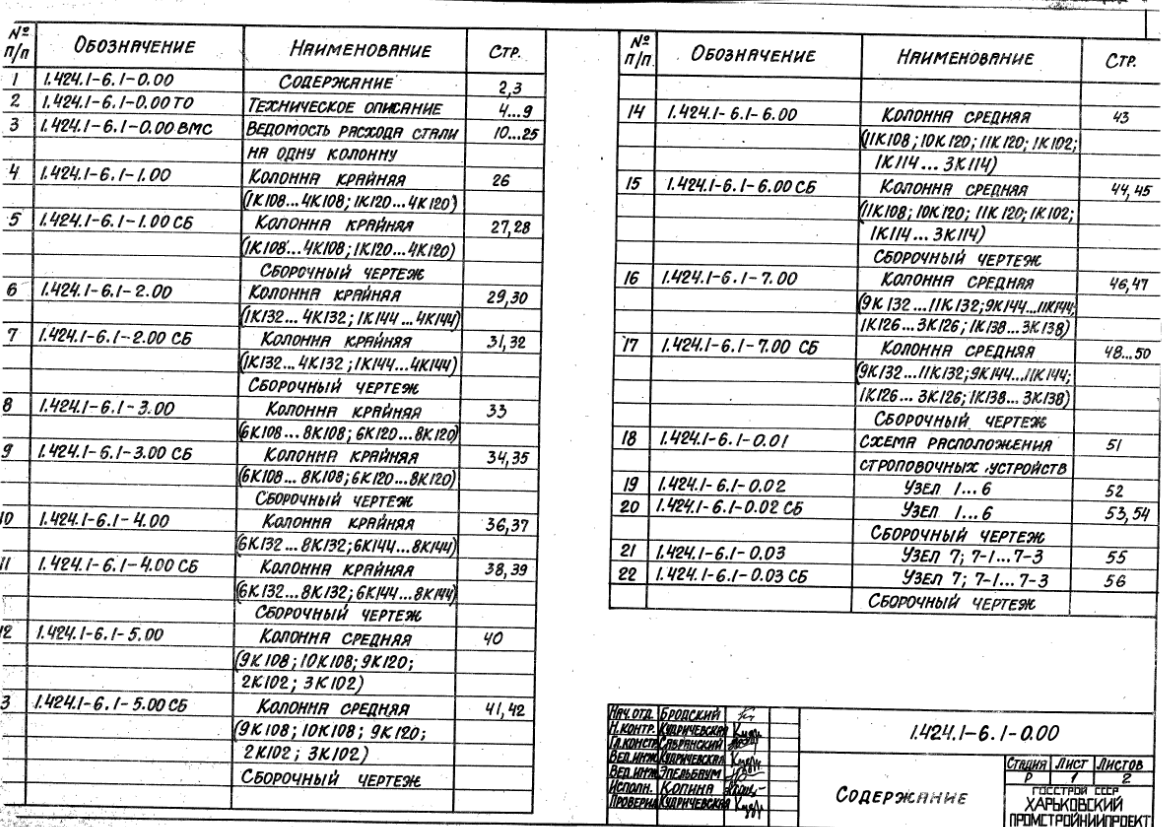 № п/п ОБОЗНАЧЕНИЕ НАИМЕНОВАНИЕ СТР.
1 1.424.1-6.1-0.00 СОДЕРЖАНИЕ 2,3
2 1.424.1-6.1-0.00 ТО ТЕХНИЧЕСКОЕ ОПИСАНИЕ 4...9
3 1.424.1-6.1-0.00 ВМС ВЕДОМОСТЬ РАСХОДА СТАЛИ 10...25
НА ОДНУ КОЛОННУ
4 1.424.1-6.1-1.00 КОЛОННА КРАЙНЯЯ 26
(1К108...4К108; 1К120...4К120)
5 1.424.1-6.1-1.00 СБ КОЛОННА КРАЙНЯЯ 27,28
(1К108...4К108; 1К120...4К120)
СБОРОЧНЫЙ ЧЕРТЕЖ
6 1.424.1-6.1-2.00 КОЛОННА КРАЙНЯЯ 29,30
(1К132...4К132; 1К144...4К144)
7 1.424.1-6.1-2.00 СБ КОЛОННА КРАЙНЯЯ 31,32
(1К132...4К132; 1К144...4К144)
СБОРОЧНЫЙ ЧЕРТЕЖ
8 1.424.1-6.1-3.00 КОЛОННА КРАЙНЯЯ 33
(6К108...8К108; 6К120...8К120)
9 1.424.1-6.1-3.00 СБ КОЛОННА КРАЙНЯЯ 34,35
(6К108...8К108; 6К120...8К120)
СБОРОЧНЫЙ ЧЕРТЕЖ
10 1.424.1-6.1-4.00 КОЛОННА КРАЙНЯЯ 36,37
(6К132...8К132; 6К144...8К144)
11 1.424.1-6.1-4.00 СБ КОЛОННА КРАЙНЯЯ 38,39
(6К132...8К132; 6К144...8К144)
СБОРОЧНЫЙ ЧЕРТЕЖ
12 1.424.1-6.1-5.00 КОЛОННА СРЕДНЯЯ 40
(9К108; 10К108; 9К120;
2К102; 3К102)
3 1.424.1-6.1-5.00 СБ КОЛОННА СРЕДНЯЯ 41,42
(9К108; 10К108; 9К120;
2К102; 3К102)
СБОРОЧНЫЙ ЧЕРТЕЖ
№ п/п ОБОЗНАЧЕНИЕ НАИМЕНОВАНИЕ СТР.
14 1.424.1-6.1-6.00 КОЛОННА СРЕДНЯЯ 43
(11К108; 10К120; 11К120; 1К102;
1К114...3К114)
15 1.424.1-6.1-6.00 СБ КОЛОННА СРЕДНЯЯ 44,45
(11К108; 10К120; 11К120; 1К102;
1К114...3К114)
СБОРОЧНЫЙ ЧЕРТЕЖ
16 1.424.1-6.1-7.00 КОЛОННА СРЕДНЯЯ 46,47
(9К132...11К132; 9К144...11К144;
1К126...3К126; 1К138...3К138)
17 1.424.1-6.1-7.00 СБ КОЛОННА СРЕДНЯЯ 48...50
(9К132...11К132; 9К144...11К144;
1К126...3К126; 1К138...3К138)
СБОРОЧНЫЙ ЧЕРТЕЖ
18 1.424.1-6.1-0.01 СХЕМА РАСПОЛОЖЕНИЯ 51
СТРОПОВОЧНЫХ УСТРОЙСТВ
19 1.424.1-6.1-0.02 УЗЕЛ 1...6 52
20 1.424.1-6.1-0.02 СБ УЗЕЛ 1...6 53,54
СБОРОЧНЫЙ ЧЕРТЕЖ
21 1.424.1-6.1-0.03 УЗЕЛ 7; 7-1...7-3 55
22 1.424.1-6.1-0.03 СБ УЗЕЛ 7; 7-1...7-3 56
СБОРОЧНЫЙ ЧЕРТЕЖ
НАЧ.ОТД. БРОДСКИЙ
Н.КОНТР. КУДРИЧЕВСКАЯ
ГЛ.КОНСТР. САВРАНСКИЙ
ВЕД.ИНЖ. КУДРИЧЕВСКАЯ
ВЕД.ИНЖ. ЭПЕЛЬБАУМ
ИСПОЛН. КОПИНА
ПРОВЕРИЛ КУДРИЧЕВСКАЯ
1.424.1-6.1-0.00
СОДЕРЖАНИЕ
СТАДИЯ ЛИСТ ЛИСТОВ
Р 1 2
ГОССТРОЙ СССР
ХАРЬКОВСКИЙ
ПРОМСТРОЙНИИПРОЕКТ